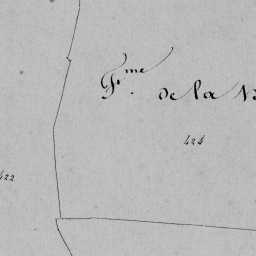 F.me
de la
424
422